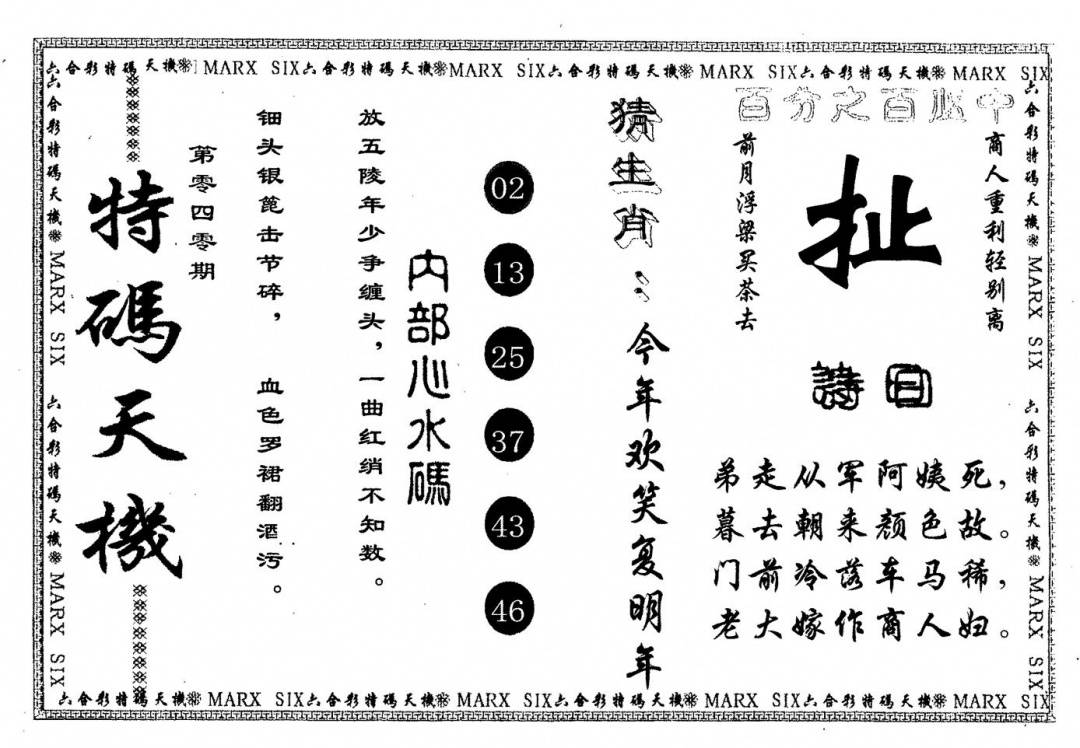 六合彩特碼天機❋ MARX SIX六合彩特碼天機❋MARX SIX六合彩特碼天機❋ MARX SIX六合彩特碼天機❋ MARX SIX
六合彩特碼天機❋ MARX SIX 六合彩特碼天機❋ MARX SIX
特碼天機
第零四零期
放五陵年少争缠头，一曲红绡不知数。
钿头银篦击节碎，血色罗裙翻酒污。
内部心水碼
02
13
25
37
43
46
猜生肖：今年欢笑复明年
百分之百必中
商人重利轻别离
前月浮梁买茶去
扯
詩曰
弟走从军阿姨死，
暮去朝来颜色故。
门前冷落车马稀，
老大嫁作商人妇。
六合彩特碼天機❋ MARX SIX 六合彩特碼天機❋ MARX SIX
六合彩特碼天機❋ MARX SIX六合彩特碼天機❋ MARX SIX六合彩特碼天機❋ MARX SIX六合彩特碼天機❋ MARX SIX